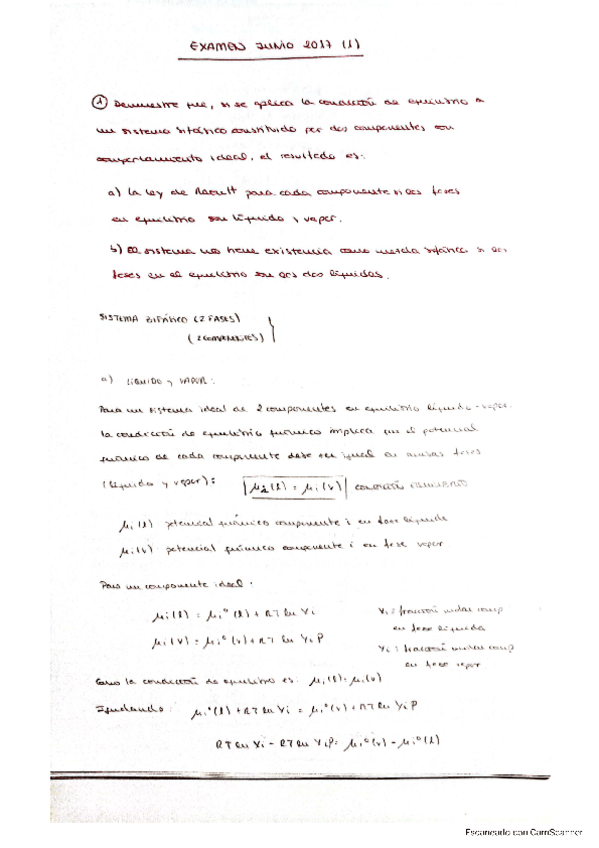 EXAMEN JUNIO 2017 (1)
① Demuestre que, si se aplica la condición de equilibrio a
un sistema bifásico constituido por dos componentes con
comportamiento ideal, el resultado es:
a) La ley de Raoult para cada componente si las fases
en equilibrio son líquido y vapor.
b) El sistema no tiene existencia como mezcla bifásica si las
fases en el equilibrio son las dos líquidas.
SISTEMA BIFÁSICO (2 FASES)
(2 COMPONENTES)
a) LIQUIDO y VAPOR:
Para un sistema ideal de 2 componentes en equilibrio líquido-vapor.
la condición de equilibrio químico implica que el potencial
químico de cada componente debe ser igual en ambas fases
(líquido y vapor): μi(l) = μi(v) CONDICIÓN EQUILIBRIO
μi(l) potencial químico componente i en fase líquida
μi(v) potencial químico componente i en fase vapor
Para un componente ideal:
μi(l) = μi°(l) + RT ln Xi Xi = fracción molar comp
en fase líquida
μi(v) = μi°(v) + RT ln YiP Yi = fracción molar comp
en fase vapor
Como la condición de equilibrio es: μi(l) = μi(v)
Igualando: μi°(l) + RT ln Xi = μi°(v) + RT ln YiP
RT ln Xi - RT ln YiP = μi°(v) - μi°(l)
Escaneado con CamScanner